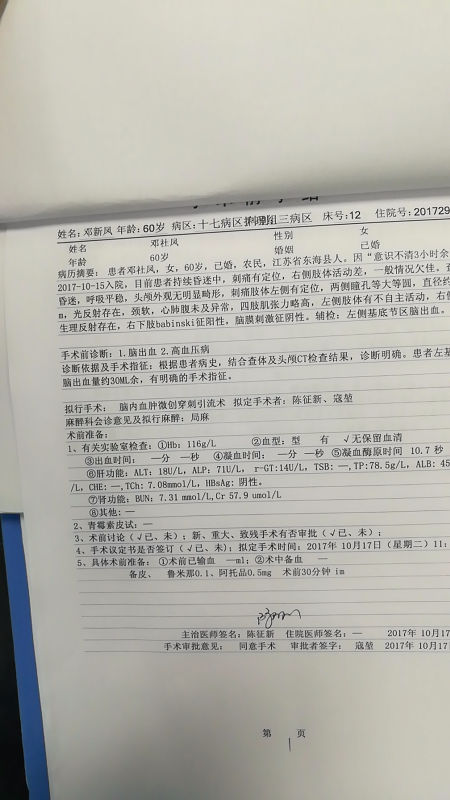 姓名:邓新风 年龄:60岁 病区:十七病区护理组三病区 床号:12 住院号:201729
姓名 邓社风 性别 女
年龄 60岁 婚姻 已婚
病历摘要: 患者邓社风,女,60岁,已婚,农民,江苏省东海县人。因“意识不清3小时余
2017-10-15入院,目前患者持续昏迷中,刺痛有定位,右侧肢体活动差,一般情况欠佳,查
昏迷,呼吸平稳,头颅外观无明显畸形,刺痛肢体左侧有定位,两侧瞳孔等大等圆,直径约
m,光反射存在,颈软,心肺腹未及异常,四肢肌张力略高,左侧肢体有不自主活动,右侧
生理反射存在,右下肢babinski征阳性,脑膜刺激征阴性。辅检:左侧基底节区脑出血。
手术前诊断:1.脑出血 2.高血压病
诊断依据及手术指征:根据患者病史,结合查体及头颅CT检查结果,诊断明确。患者左基
脑出血量约30ML余,有明确的手术指征。
拟行手术: 脑内血肿微创穿刺引流术 拟定手术者:陈征新、寇堃
麻醉科会诊意见及拟行麻醉:局麻
术前准备:
1、有关实验室检查:①Hb: 116g/L ②血型:型 有 √无保留血清
③出血时间: —分 —秒 ④凝血时间: —分 —秒 ⑤凝血酶原时间 10.7 秒
⑥肝功能:ALT: 18U/L, ALP: 71U/L, r-GT:14U/L, TSB: —,TP:78.5g/L, ALB: 45
/L, CHE: —,TCh: 7.08mmol/L, HBsAg: 阴性。
⑦肾功能:BUN: 7.31 mmol/L,Cr 57.9 umol/L
⑧其他:—
2、青霉素皮试:—
3、术前讨论(√已、未);新、重大、致残手术有否审批(√已、未);
4、手术议定书是否签订(√已、未);拟定手术时间:2017年 10月17日(星期二)11:
5、具体术前准备: ①术前已输血 —ml; ②术中备血 —
备皮、 鲁米那0.1、阿托品0.5mg 术前30分钟 im
主治医师签名:陈征新 住院医师签名:— 2017年 10月17
手术审批意见: 同意手术 审批者签字: 寇堃 2017年 10月17日
第 页